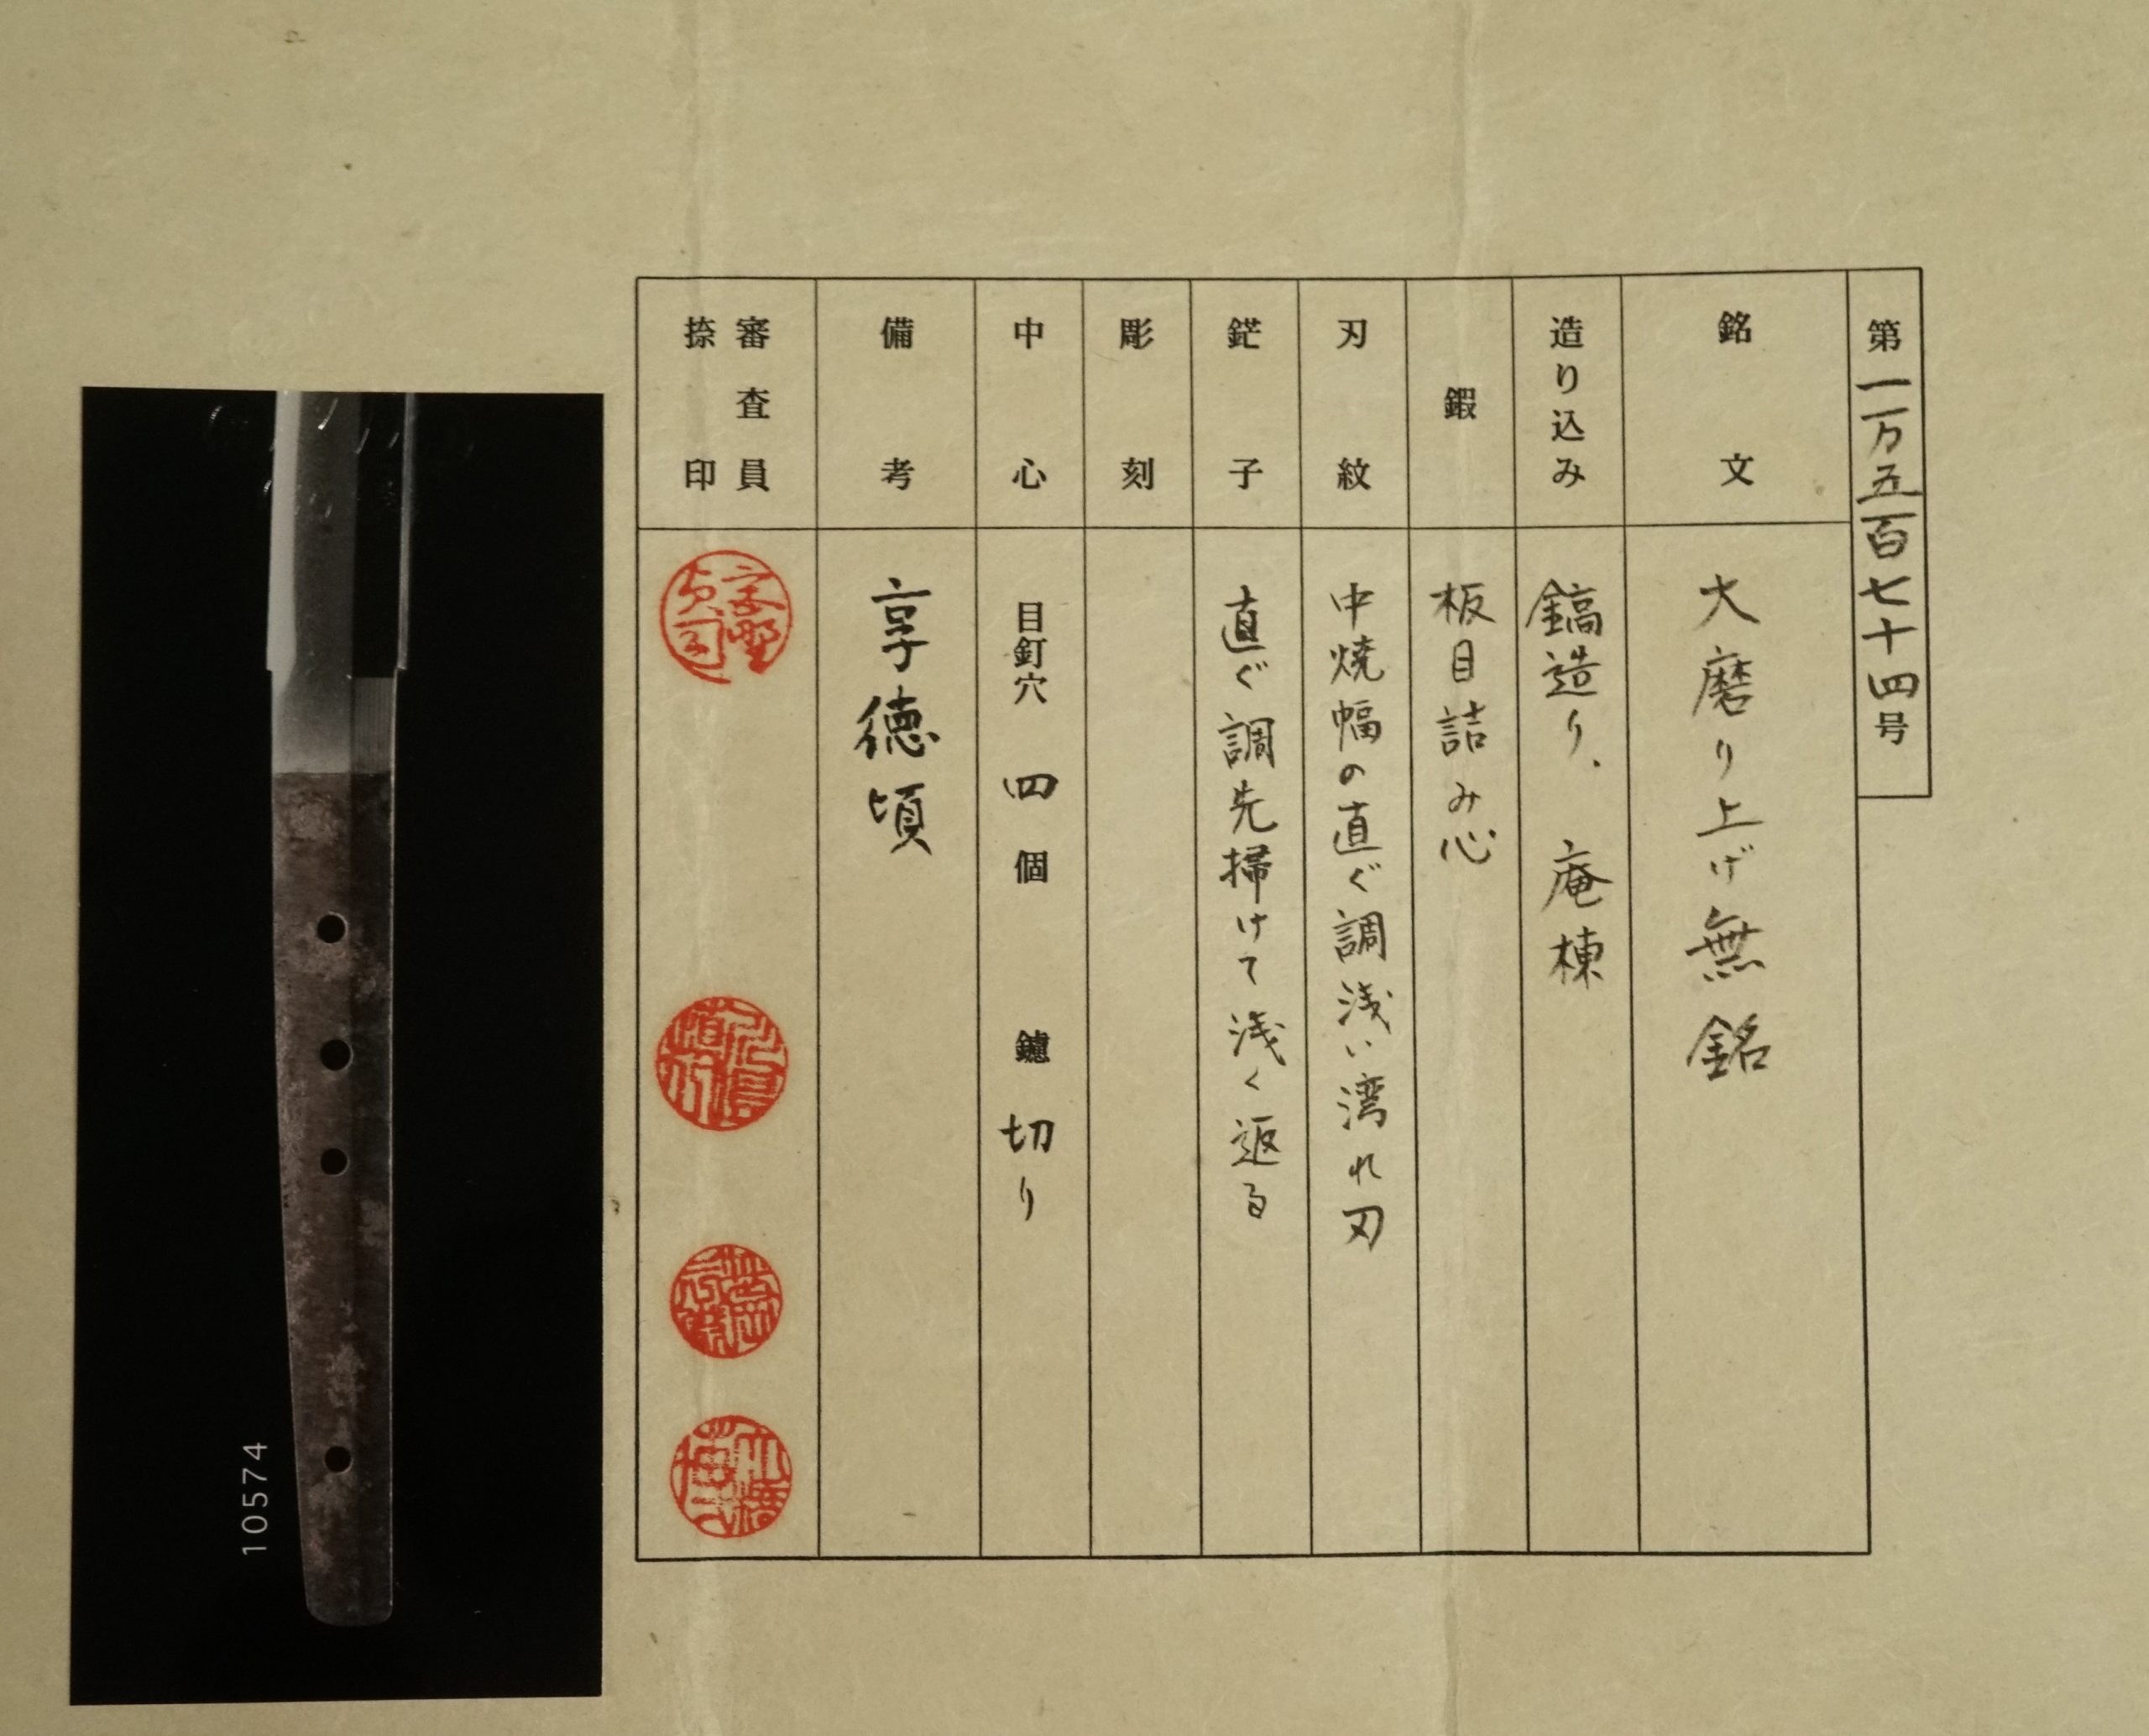 第一万五百七十四号
銘文
大磨り上げ無銘
造り込み
鎬造り、庵棟
鍜
板目詰み心
刃紋
中焼幅の直ぐ調浅い湾れ刃
鋩子
直ぐ調先掃けて浅く返る
彫刻
中心
目釘穴 四 個 鑢 切り
備考
享徳頃
審査員
捺印
10574